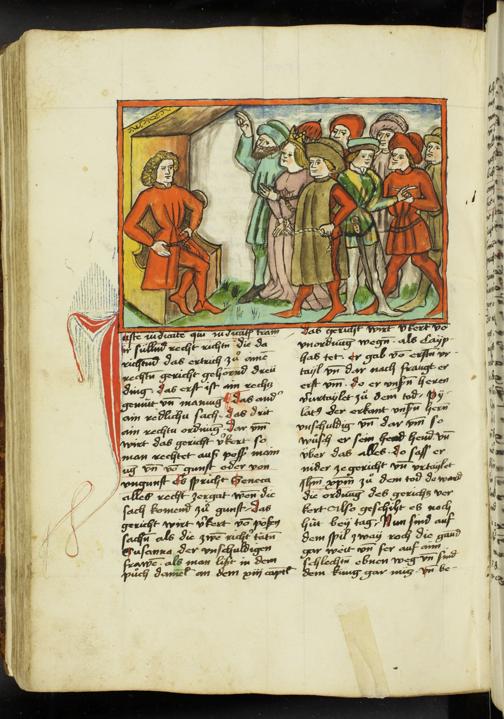 uste iudicate qui iudicatis terram
Ir süllend recht richten die da
richtend das ertrich zů aine
rechten gericht gehörend dreü
ding. das erst ist ain rechtz
gemüt vn mainug das and
ain redlichü sach. das drit
ain rechtü ordnung dar vm
wirt das gericht vkert so
man rechtet auß pöß main
ug vn vo gunst oder von
vngunst Es spricht Seneca
alles recht zergat wen die
sach koment zů gunst. das
gericht wirt vkert vo pößen
sachn als die zwe richt tatn
Susanna der vnschuldigen
frawe. als man list in dem
půch daniel an dem xiij captl
das gericht wirt vkert vo
vnordnug wegn. als Cayp
has tet. er gab vo erstn vr
tayl vn dar nach fraugt er
erst vm. do er vnsn heren
vurtaylet zů dem tod. py
lat9 der erkant vnsn hern
vnschuldig vn dar vm so
wůsch er sein hend vn
vber das alles. do sass er
nider ze gericht vn vrtaylet
ihm xpm zů dem tod do ward
die ordnug des gerichtz ver
kert Also geschiht es noch
hüt bey tag. Nun sind auf
dem spil zway roch die gand
gar weit vn fer auf aim
schlechten ebnen weg vn sind
dem kung gar nutz. vn be-